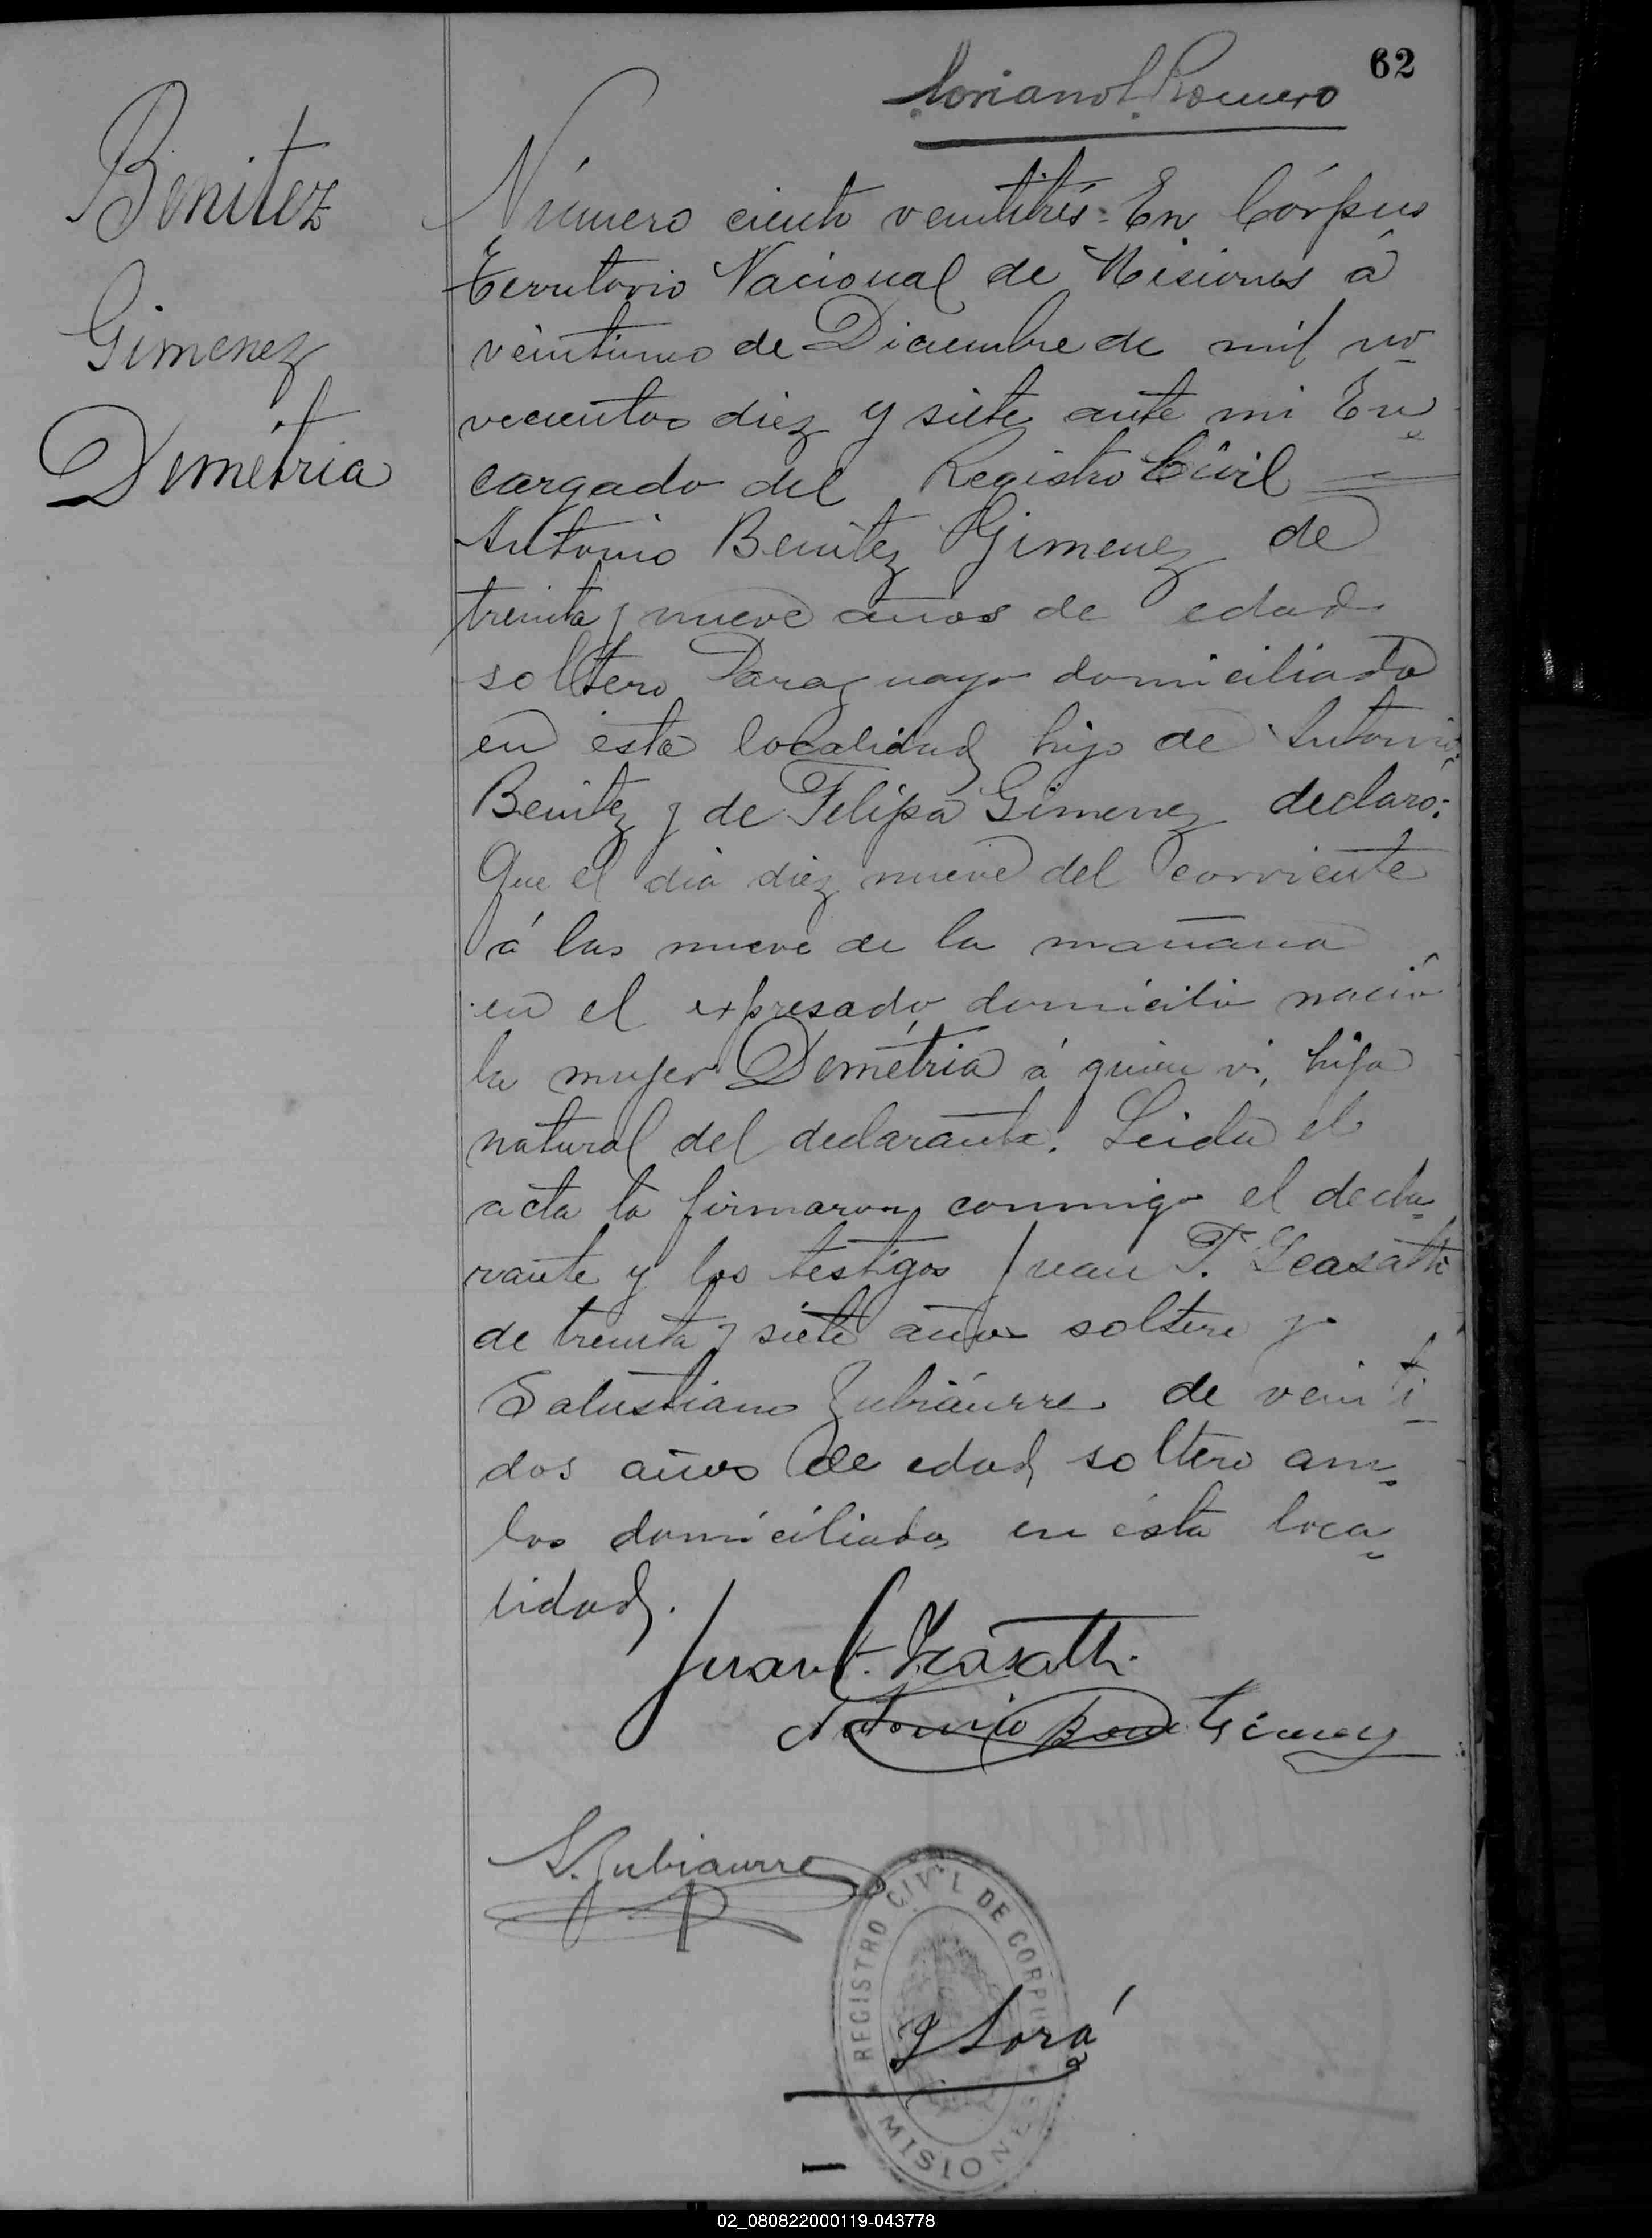 62
Romero
Benitez
Gimenez
Demétria
Número ciento veintitrés. En Córpus
Territorio Nacional de Misiones á
veintiuno de Diciembre de mil no
vecientos diez y siete ante mi En
cargado del Registro Civil
Antonio Benitez Gimenez de
treinta y nueve años de edad
soltero Paraguayo domiciliado
en esta localidad hijo de Antonio
Benitez y de Felipa Gimenez declaró:
Que el dia diez nueve del corriente
á las nueve de la mañana
en el expresado domicilio nació
la mujer Demétria á quien vi, hija
natural del declarante. Leida el
acta la firmaron conmigo el decla
rante y los testigos Juan T.
de treinta y siete años soltero y
Salustiano Zubiaurre de veinti
dos años de edad soltero am
bos domiciliados en ésta loca
lidad.
Juan
Antonio Gimenez
S. Zubiaurre
REGISTRO CIVIL DE CORPUS
MISIONES
02_080822000119-043778